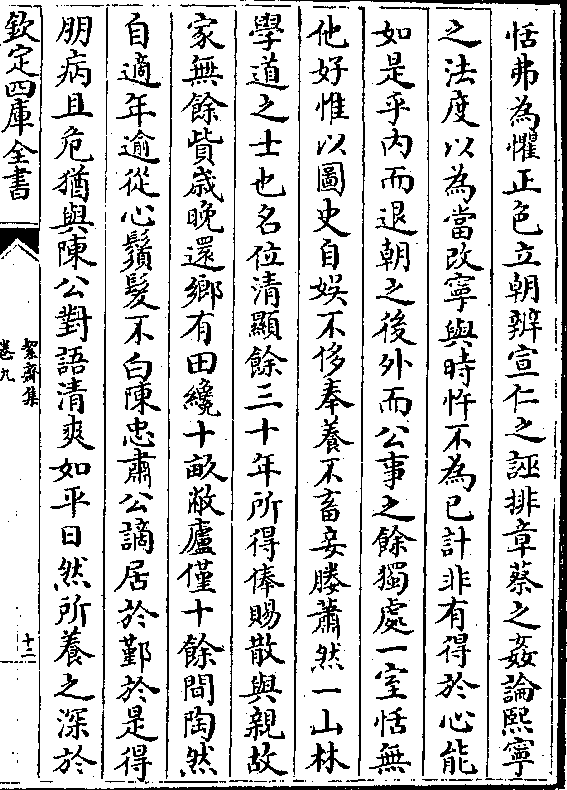 恬弗為懼正色立朝辨宣仁之誣排章蔡之姦論熙寧
之法度以為當改寧與時忤不為已計非有得於心能
如是乎内而退朝之後外而公事之餘獨處一室恬無
他好惟以圖史自娯不侈奉養不畜妾媵蕭然一山林
學道之士也名位清顯餘三十年所得俸賜散與親故
家無餘貲歳晩還鄉有田纔十畝敝廬僅十餘間陶然
自適年逾從心鬚髮不白陳忠肅公謫居於鄞於是得
朋病且危猶與陳公對語清爽如平日然所養之深於
欽定四庫全書
絜齋集
卷九
十二